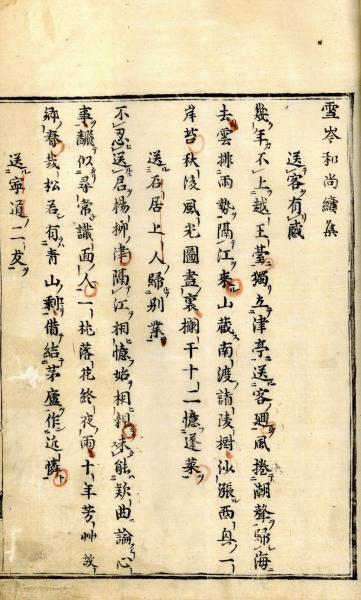 雪岑和尚續集
送客有感
幾年不上越王臺獨立津亭送客廻風捲潮聲歸海
去雲排雨勢隔江來山藏南渡諸陵樹沙漲西興一
岸苔秋後風光圖畫裏欄干十二憶蓬萊
送石居上人歸別業
不忍送君楊柳津隔江相憶始相親未能欵曲論心
事翻似尋常識面人一 落花終夜雨十年芳艸故
鄉春哉松若有青山剩借結茅廬作近憐
送寧道二友